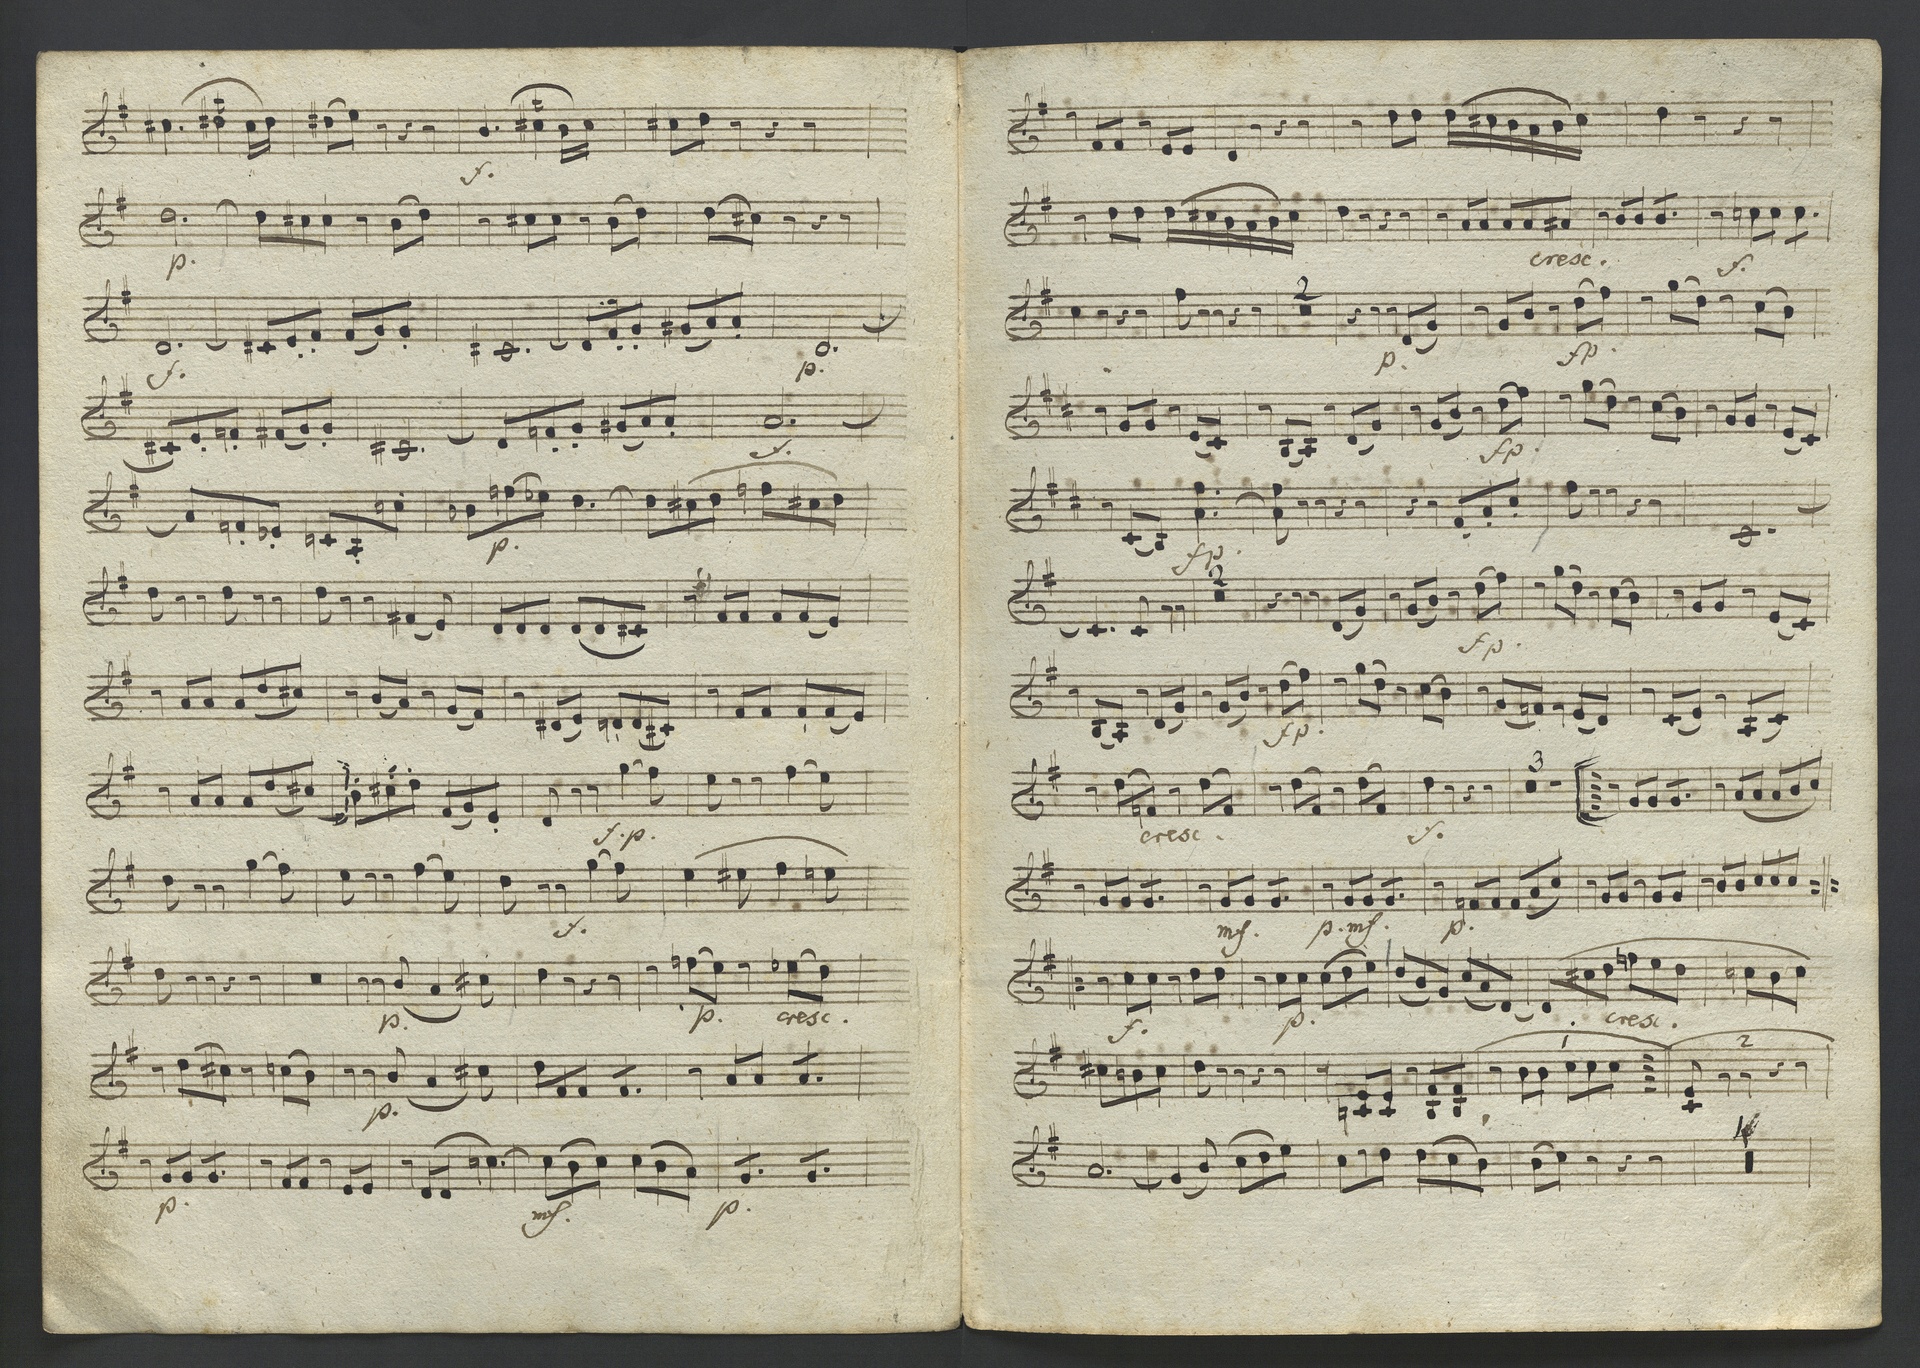 f.
p.
f. p.
f.
p.
f. p.
f.
p. p. cresc.
p.
p. mf. p.
cresc. f.
2
p. fp.
fp.
fp.
2
fp.
fp.
3
cresc. f.
mf. p. mf. p.
f. p. cresc.
1 2